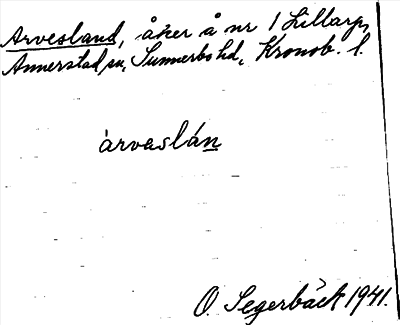 Arvesland, åker å nr 1 Lillarp,
Annerstad sn, Sunnerbo hd, Kronob. l.
àrveslán
O. Segerbäck 1941.